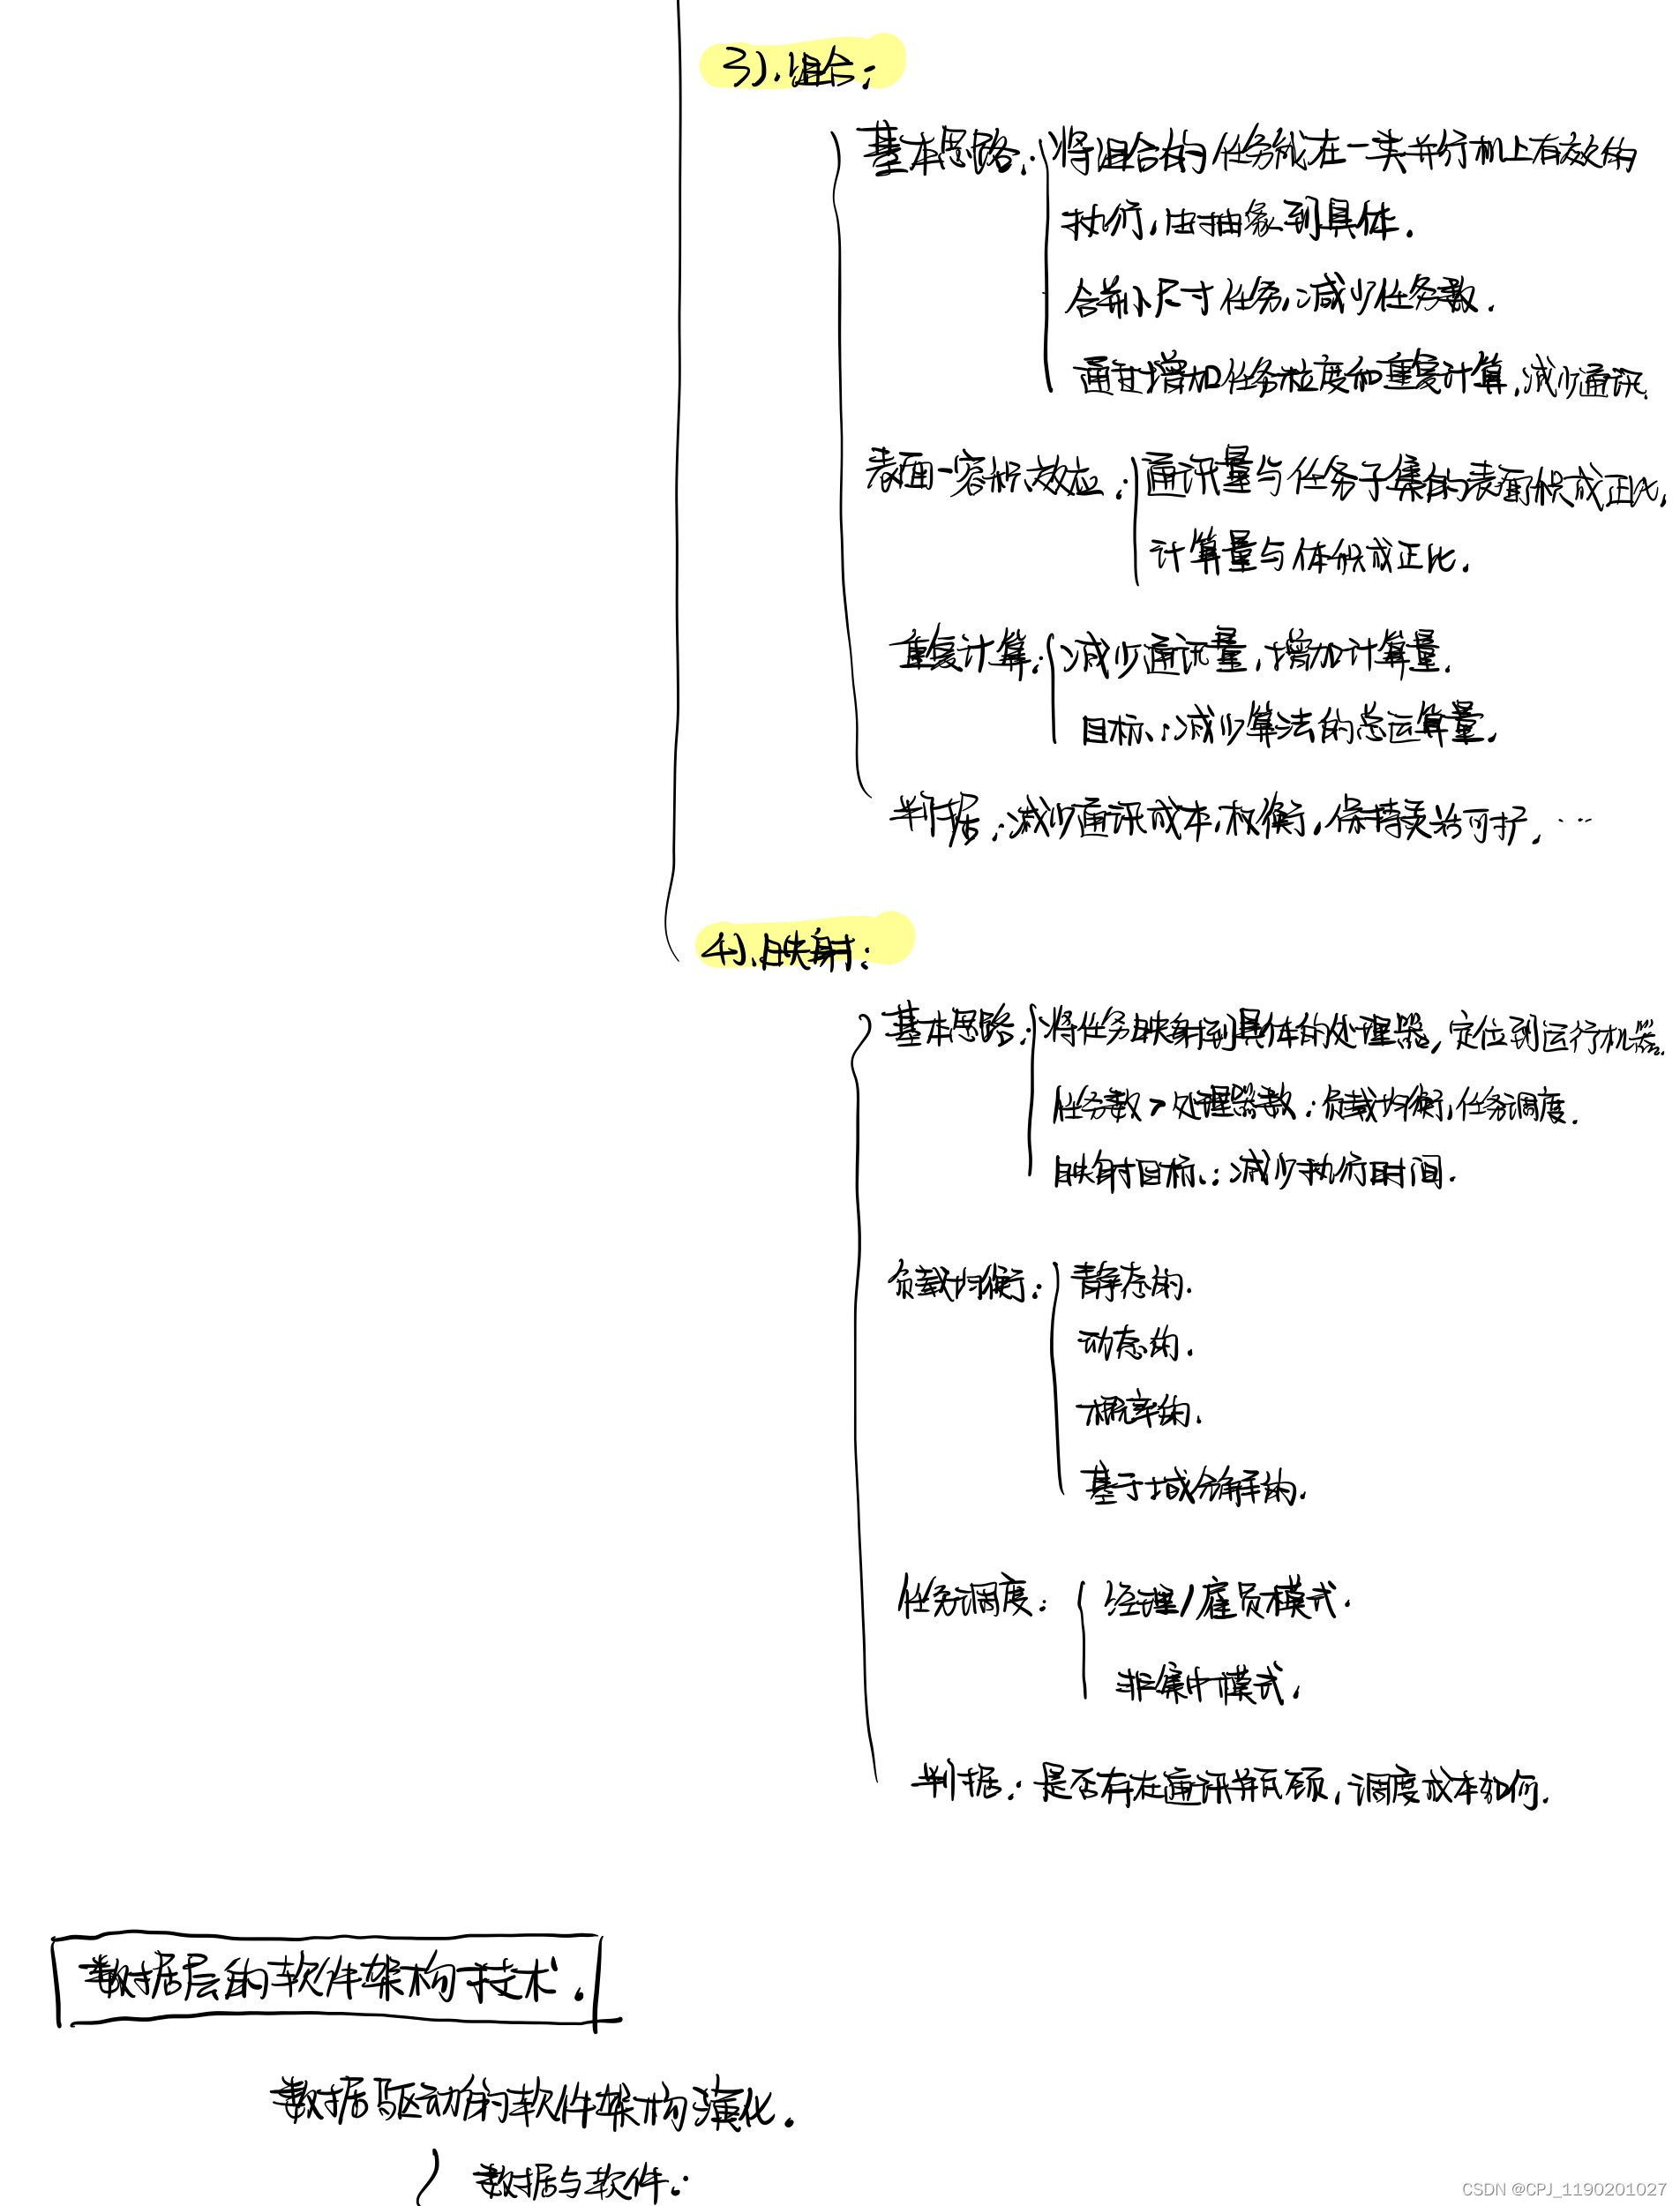 3).组合:
基本思路:将组合的任务能在一类并行机上有效的
执行,由抽象到具体.
合并小尺寸任务,减少任务数.
通过增加任务粒度和重复计算,减少通讯.
表面-容积效应:通讯量与任务子集的表面积成正比,
计算量与体积成正比.
重复计算:减少通讯量,增加计算量.
目标:减少算法的总运算量.
判据:减少通讯成本,权衡,保持灵活可扩,…
4).映射:
基本思路:将任务映射到具体的处理器,定位到运行机器.
任务数>处理器数:负载均衡,任务调度.
映射目标:减少执行时间.
负载均衡:静态的.
动态的.
概率的.
基于域分解的.
任务调度:经理/雇员模式.
非集中模式.
判据:是否存在通讯瓶颈,调度成本如何.
数据层的软件架构技术.
数据驱动的软件架构演化.
数据与软件:
CSDN @CPJ_1190201027